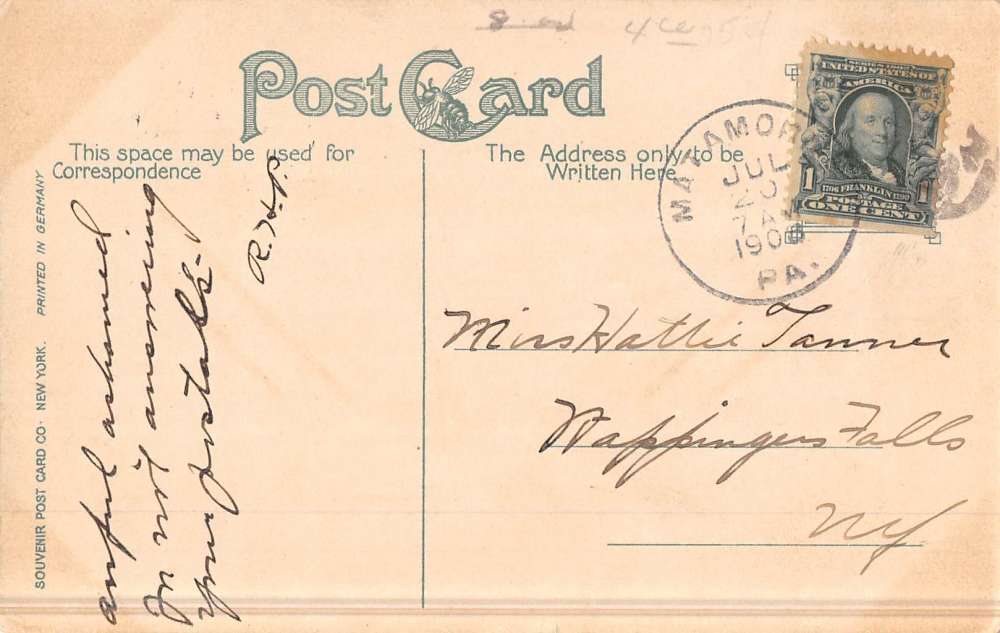 Post Card
This space may be used for
Correspondence
The Address only to be
Written Here
SOUVENIR POST CARD CO · NEW YORK. PRINTED IN GERMANY
awful ashamed
In not answering
your postals-
R.H.P.
MATAMOR
JUL
20
7 AM
190
PA.
SERIES 1902
UNITED STATES OF
AMERICA
1 1
1706 FRANKLIN 1790
POSTAGE
ONE CENT
Miss Hattie Tanner
Wappingers Falls
NY